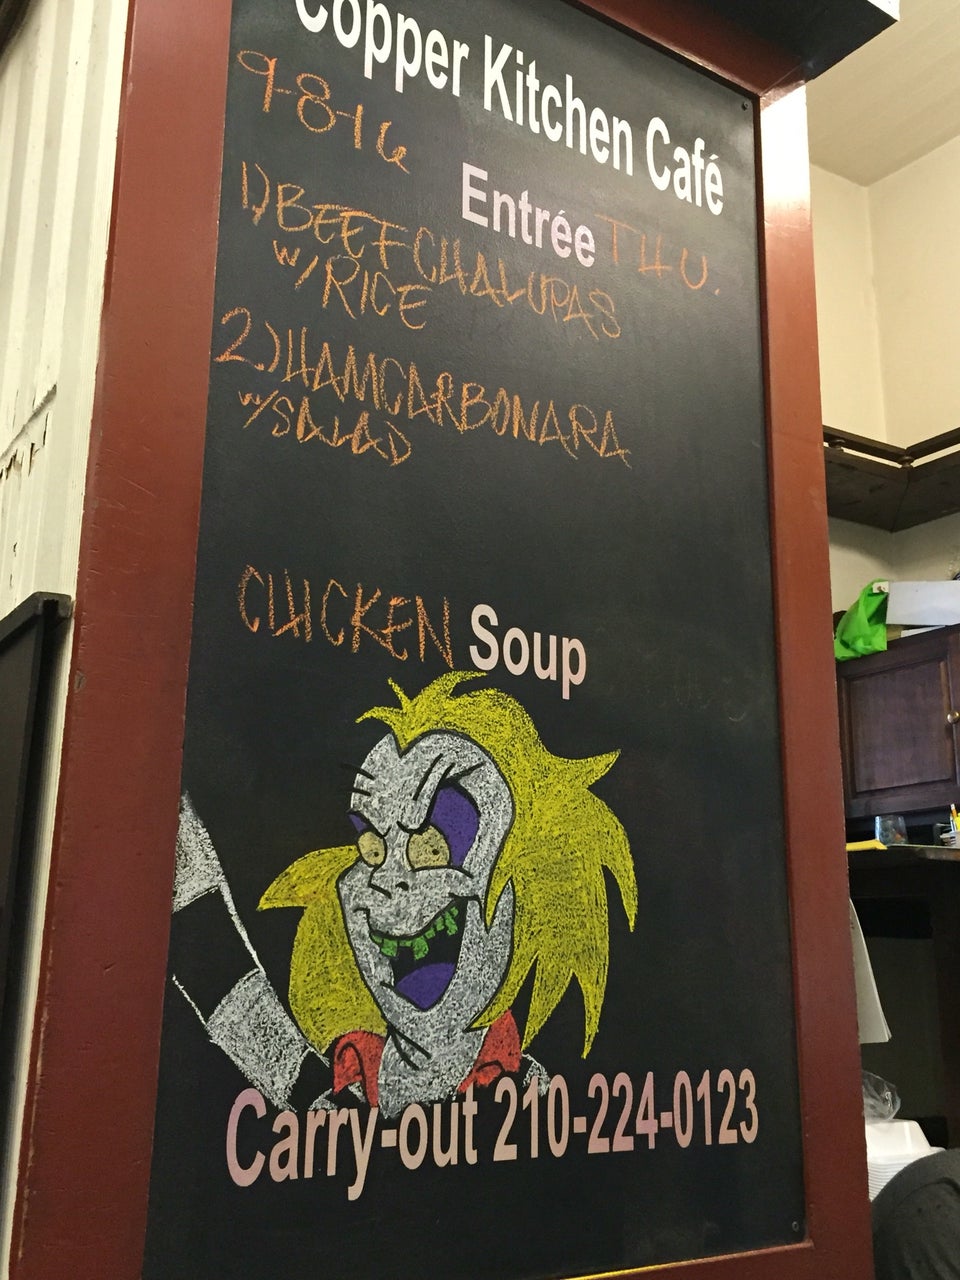 Copper Kitchen Café
9-8-16
Entrée THU.
1) BEEF CHALUPAS
w/ RICE
2) HAM CARBONARA
w/ SALAD
CHICKEN Soup
Carry-out 210-224-0123